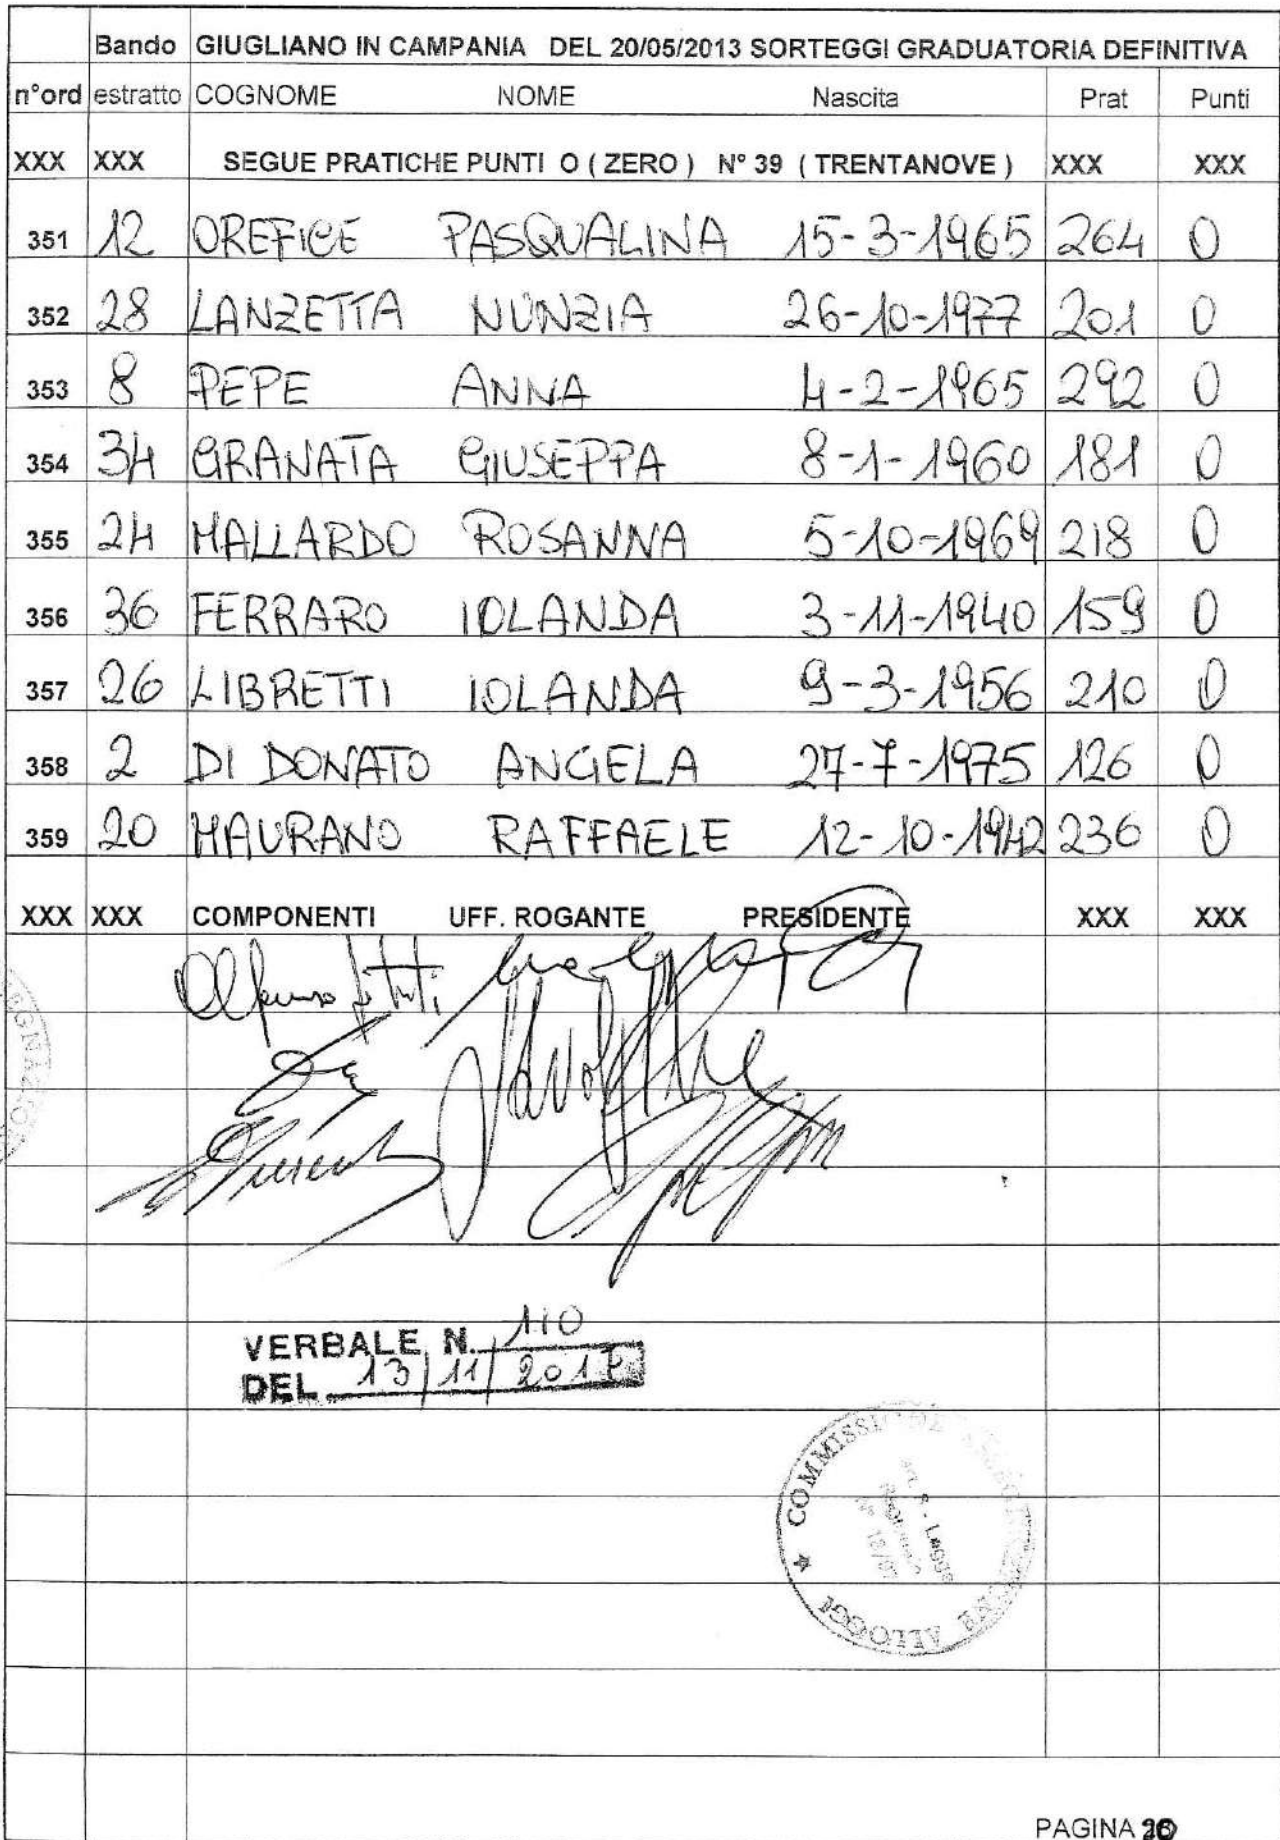 Bando GIUGLIANO IN CAMPANIA DEL 20/05/2013 SORTEGGI GRADUATORIA DEFINITIVA
n°ord estratto COGNOME NOME Nascita Prat Punti
XXX XXX SEGUE PRATICHE PUNTI O ( ZERO ) N° 39 ( TRENTANOVE ) XXX XXX
351 12 OREFICE PASQUALINA 15-3-1965 264 0
352 28 LANZETTA NUNZIA 26-10-1977 201 0
353 8 PEPE ANNA 4-2-1965 292 0
354 34 GRANATA GIUSEPPA 8-1-1960 181 0
355 24 MALLARDO ROSANNA 5-10-1969 218 0
356 36 FERRARO IOLANDA 3-11-1940 159 0
357 26 LIBRETTI IOLANDA 9-3-1956 210 0
358 2 DI DONATO ANGELA 27-7-1975 126 0
359 20 MAURANO RAFFAELE 12-10-1942 236 0
XXX XXX COMPONENTI UFF. ROGANTE PRESIDENTE XXX XXX
VERBALE N. 110
DEL 13/11/201
COMMISSIONE ASSEGNAZIONE ALLOGGI
Legge
PAGINA